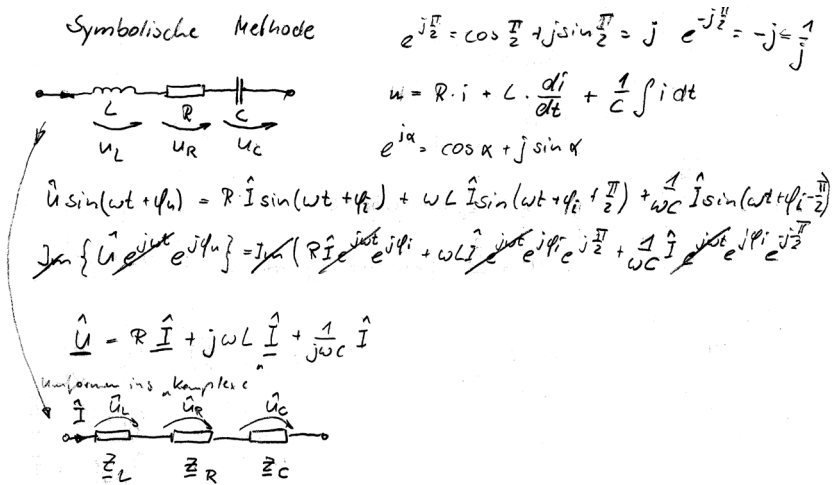 Symbolische Methode
e^{jπ/2} = cos π/2 + j sin π/2 = j   e^{-jπ/2} = -j = 1/j
L R C
u_L u_R u_C
u = R · i + L · di/dt + 1/C ∫ i dt
e^{jα} = cos α + j sin α
Û sin(ωt + φ_u) = R · Î sin(ωt + φ_i) + ωL Î sin(ωt + φ_i + π/2) + 1/ωC Î sin(ωt + φ_i - π/2)
Im { Û e^{jωt} e^{jφ_u} } = Im ( R Î e^{jωt} e^{jφ_i} + ωL Î e^{jωt} e^{jφ_i} e^{jπ/2} + 1/ωC Î e^{jωt} e^{jφ_i} e^{-jπ/2}
Û = R Î + jωL Î + 1/jωC Î
Umformen ins „Komplexe"
Î Û_L Û_R Û_C
Z_L Z_R Z_C